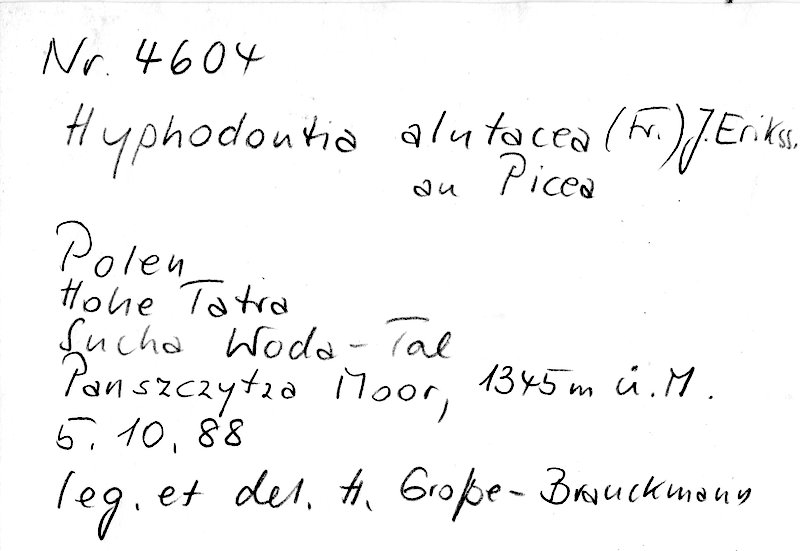 Nr. 4604
Hyphodontia alutacea (Fr.) J. Erikss.
an Picea
Polen
Hohe Tatra
Sucha Woda-Tal
Panszczytza Moor, 1345 m ü. M.
5. 10. 88
leg. et det. H. Große-Brauckmann